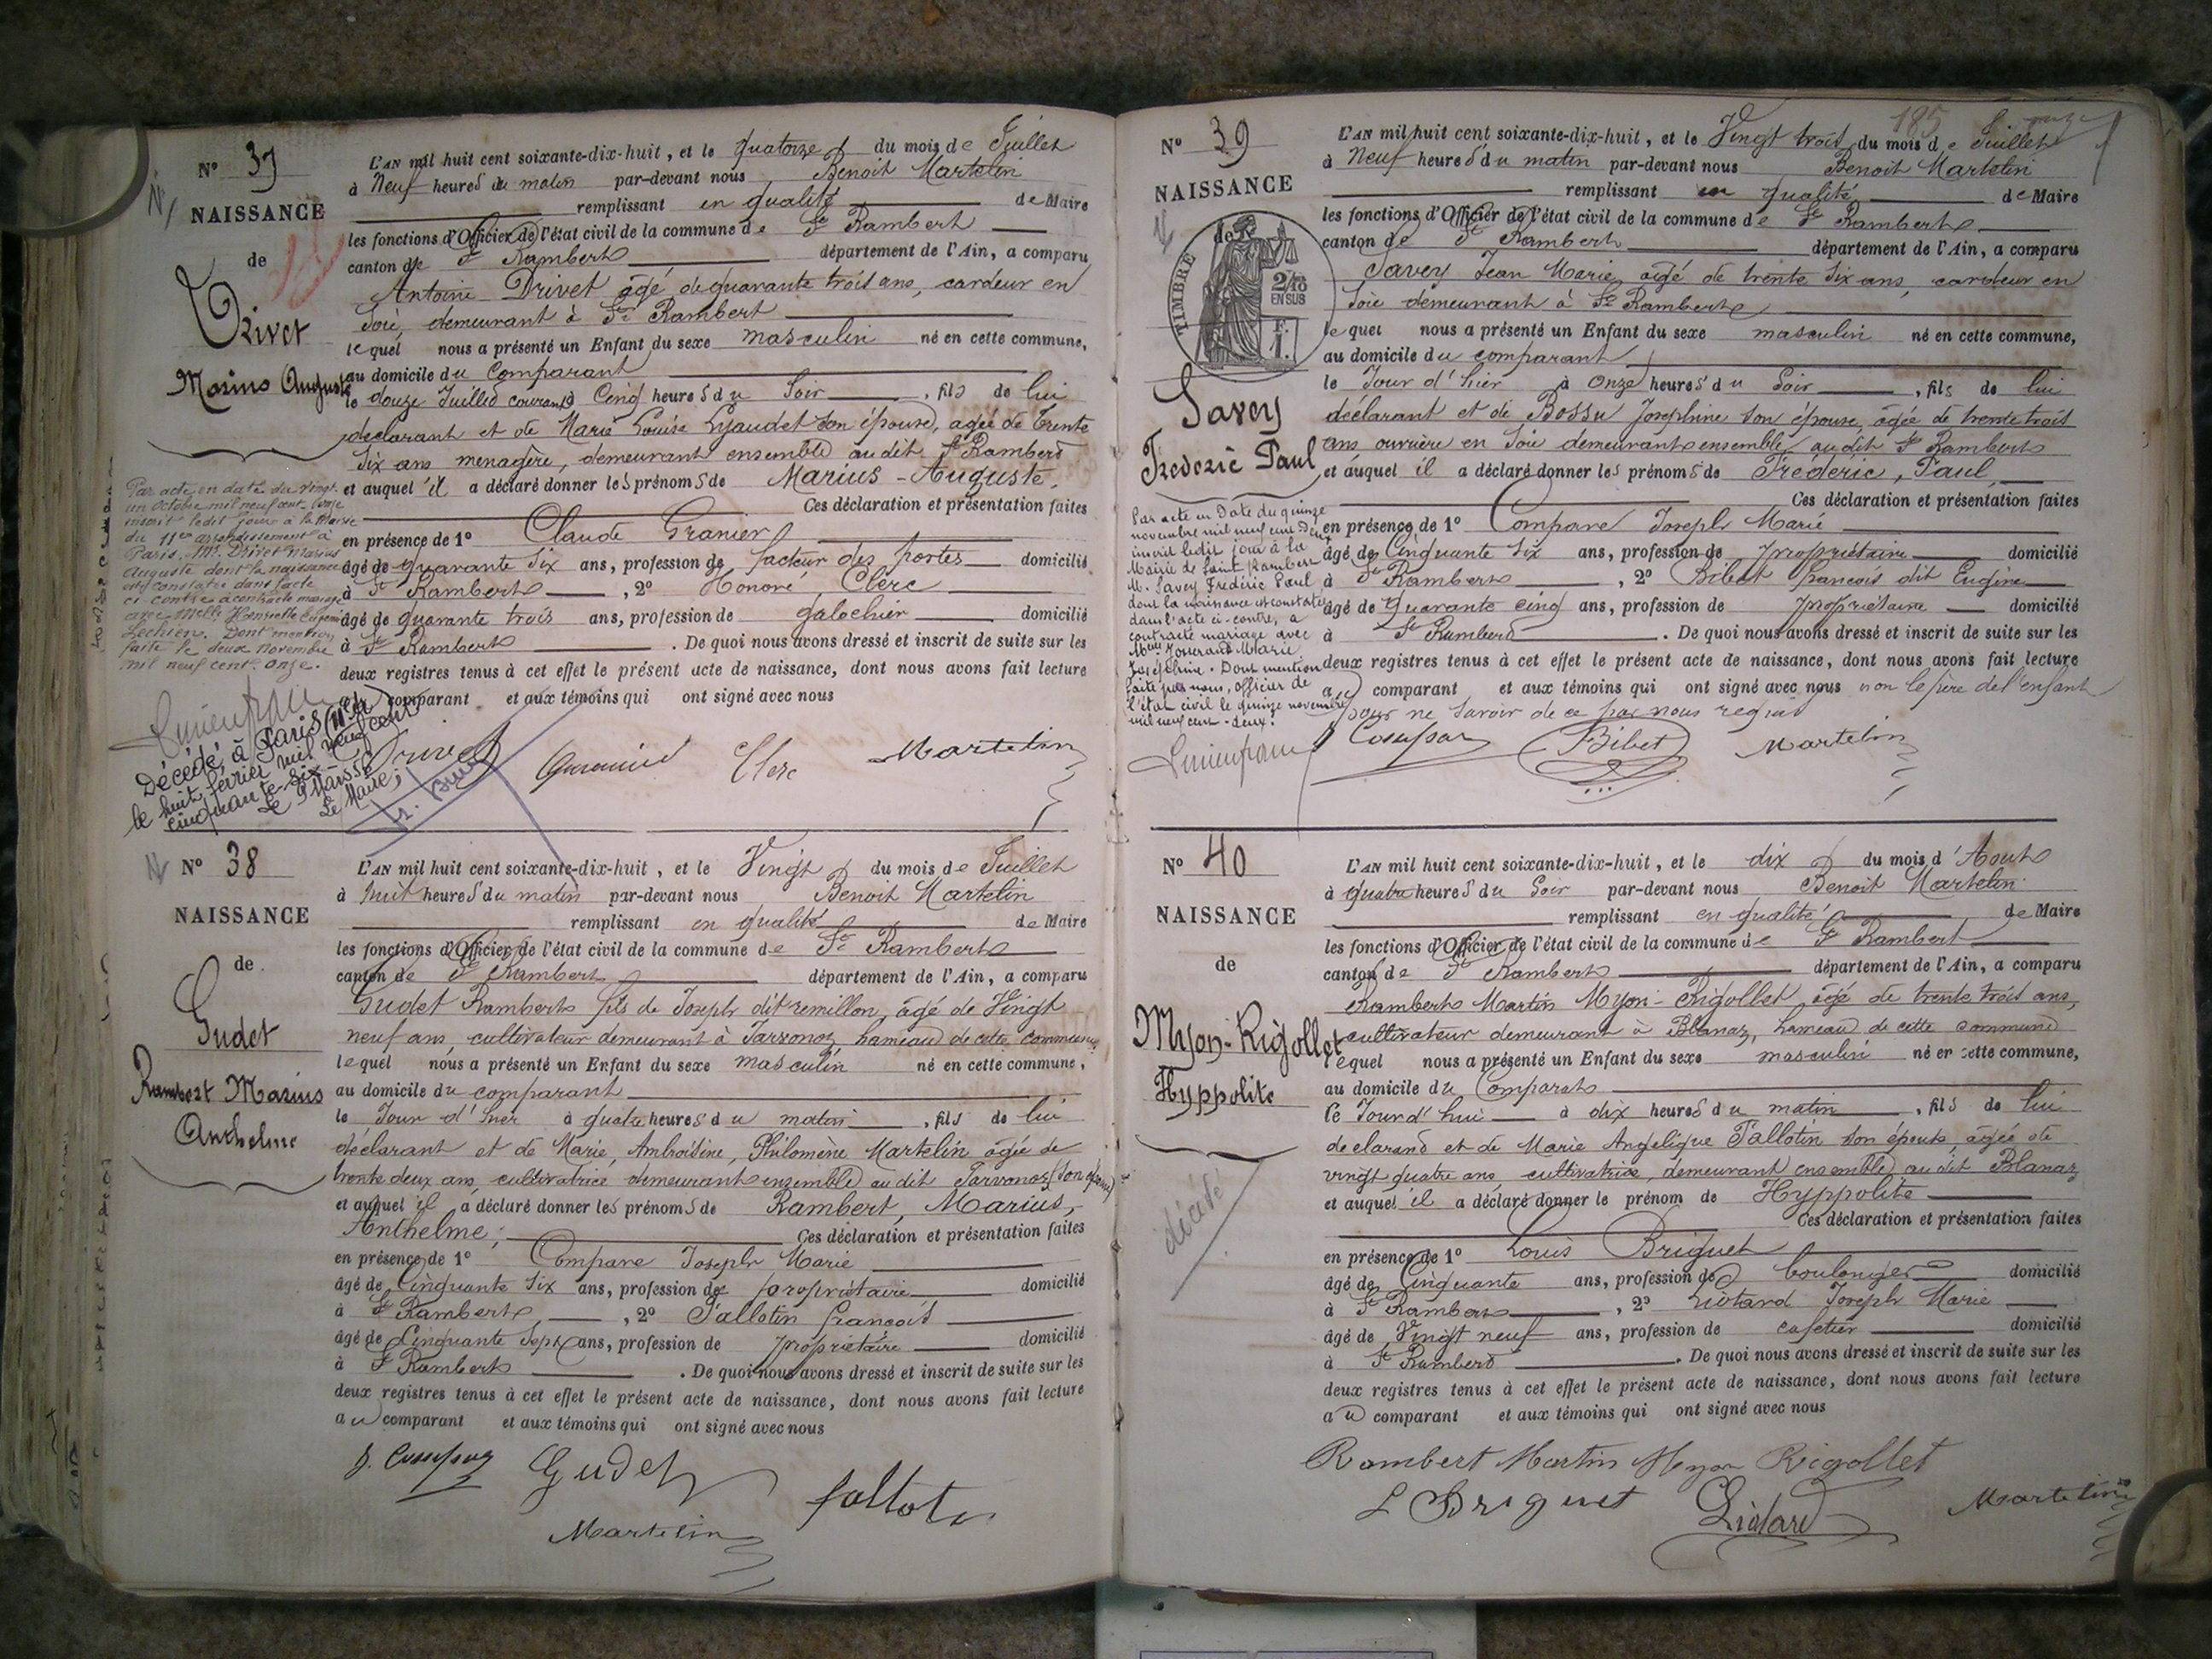 N° 37
NAISSANCE
de
Drivet
Marius Auguste
L'AN mil huit cent soixante-dix-huit, et le quatorze du mois de Juillet
à Neuf heures du matin par-devant nous Benoit Martelin
remplissant en qualité de Maire
les fonctions d'Officier de l'état civil de la commune de St Rambert
canton de St Rambert département de l'Ain, a comparu
Antoine Drivet âgé de quarante trois ans, cardeur en
Soie, demeurant à St Rambert
lequel nous a présenté un Enfant du sexe masculin né en cette commune,
au domicile du Comparant
le douze Juillet courant à Cinq heures du Soir, fils de lui
déclarant et de Marie Louise Lyaudet son épouse, agée de Trente
Six ans menagère, demeurant ensemble audit St Rambert
et auquel il a déclaré donner les prénoms de Marius - Auguste.
Ces déclaration et présentation faites
en présence de 1° Claude Granier
âgé de quarante Six ans, profession de facteur des postes domicilié
à St Rambert, 2° Honoré Clerc
âgé de quarante trois ans, profession de galochier domicilié
à St Rambert. De quoi nous avons dressé et inscrit de suite sur les
deux registres tenus à cet effet le présent acte de naissance, dont nous avons fait lecture
au comparant et aux témoins qui ont signé avec nous
Drivet Clerc Martelin
Par acte en date du vingt-
un octobre mil neuf cent onze
inscrit ledit jour à la Mairie
du 11eme arrondissement à
Paris. Mr. Drivet Marius
Auguste dont la naissance
est constatée dans l'acte
ci-contre a contracté mariage
avec Melle Henriette Eugénie
Lechien. Dont mention
faite le deux novembre
mil neuf cent onze.
Décédé à Paris (11e)
le huit février mil neuf cent
cinquante-six
Le 9 Mars 56
Le Maire,
N° 38
NAISSANCE
de
Gudet
Rambert Marius
Anthelme
L'AN mil huit cent soixante-dix-huit, et le Vingt du mois de Juillet
à huit heures du matin par-devant nous Benoit Martelin
remplissant en qualité de Maire
les fonctions d'Officier de l'état civil de la commune de St Rambert
canton de St Rambert département de l'Ain, a comparu
Gudet Rambert fils de Joseph dit remillon, âgé de Vingt
neuf ans, cultivateur demeurant à Javornoz hameau de cette commune
lequel nous a présenté un Enfant du sexe masculin né en cette commune,
au domicile du comparant
le Jour d'hier à quatre heures du matin, fils de lui
déclarant et de Marie, Ambroisine, Philomène Martelin âgée de
trente deux ans, cultivatrice demeurant ensemble au dit Javornoz (son épouse)
et auquel il a déclaré donner les prénoms de Rambert, Marius,
Anthelme; Ces déclaration et présentation faites
en présence de 1° Compare Joseph Marie
âgé de Cinquante Six ans, profession de propriétaire domicilié
à St Rambert, 2° Pallotin François
âgé de Cinquante Sept ans, profession de propriétaire domicilié
à St Rambert. De quoi nous avons dressé et inscrit de suite sur les
deux registres tenus à cet effet le présent acte de naissance, dont nous avons fait lecture
au comparant et aux témoins qui ont signé avec nous
Gudet
Martelin
185
N° 39
NAISSANCE
de
TIMBRE
2/10
EN SUS
1 F.
Savey
Frédéric Paul
L'AN mil huit cent soixante-dix-huit, et le Vingt trois du mois de Juillet
à Neuf heures du matin par-devant nous Benoit Martelin
remplissant en qualité de Maire
les fonctions d'Officier de l'état civil de la commune de St Rambert
canton de St Rambert département de l'Ain, a comparu
Savey Jean Marie, âgé de trente Six ans, cardeur en
Soie demeurant à St Rambert
lequel nous a présenté un Enfant du sexe masculin né en cette commune,
au domicile du comparant
le Jour d'hier à onze heures du Soir, fils de lui
déclarant et de Bossu Josephine son épouse, âgée de trente trois
ans ouvrière en Soie demeurant ensemble audit St Rambert
et auquel il a déclaré donner les prénoms de Fréderic, Paul,
Ces déclaration et présentation faites
en présence de 1° Compare Joseph Marie
âgé de Cinquante Six ans, profession de propriétaire domicilié
à St Rambert, 2° Bibet françois dit Eugène
âgé de quarante cinq ans, profession de propriétaire domicilié
à St Rambert. De quoi nous avons dressé et inscrit de suite sur les
deux registres tenus à cet effet le présent acte de naissance, dont nous avons fait lecture
au comparant et aux témoins qui ont signé avec nous non le père de l'enfant
pour ne savoir de ce par nous requis
Bibet Martelin
Par acte en Date du quinze
novembre mil neuf cent deux
inscrit ledit jour à la
Mairie de Saint Rambert
M. Savey Frédéric Paul
dont la naissance est constatée
dans l'acte ci-contre, a
contracté mariage avec
Marie
Joséphine. Dont mention
faite par nous, officier de
l'état civil le quinze novembre
mil neuf cent-deux.
N° 40
NAISSANCE
de
Myon-Rigollet
Hyppolite
décédé
L'AN mil huit cent soixante-dix-huit, et le dix du mois d'Aout
à quatre heures du Soir par-devant nous Benoit Martelin
remplissant en qualité de Maire
les fonctions d'Officier de l'état civil de la commune de St Rambert
canton de St Rambert département de l'Ain, a comparu
Rambert Martin Myon-Rigollet, âgé de trente trois ans,
cultivateur demeurant à Blanaz, hameau de cette commune
lequel nous a présenté un Enfant du sexe masculin né en cette commune,
au domicile du Comparant
le Jour d'hui à dix heures du matin, fils de lui
déclarant et de Marie Angelique Pallotin son épouse, âgée de
vingt quatre ans, cultivatrice, demeurant ensemble, au dit Blanaz
et auquel il a déclaré donner le prénom de Hyppolite
Ces déclaration et présentation faites
en présence de 1° Louis Briguet
âgé de Cinquante ans, profession de boulanger domicilié
à St Rambert, 2° Liotard Joseph Marie
âgé de Vingt neuf ans, profession de cafetier domicilié
à St Rambert. De quoi nous avons dressé et inscrit de suite sur les
deux registres tenus à cet effet le présent acte de naissance, dont nous avons fait lecture
au comparant et aux témoins qui ont signé avec nous
Rambert Martin Myon Rigollet
L Briguet Liotard Martelin